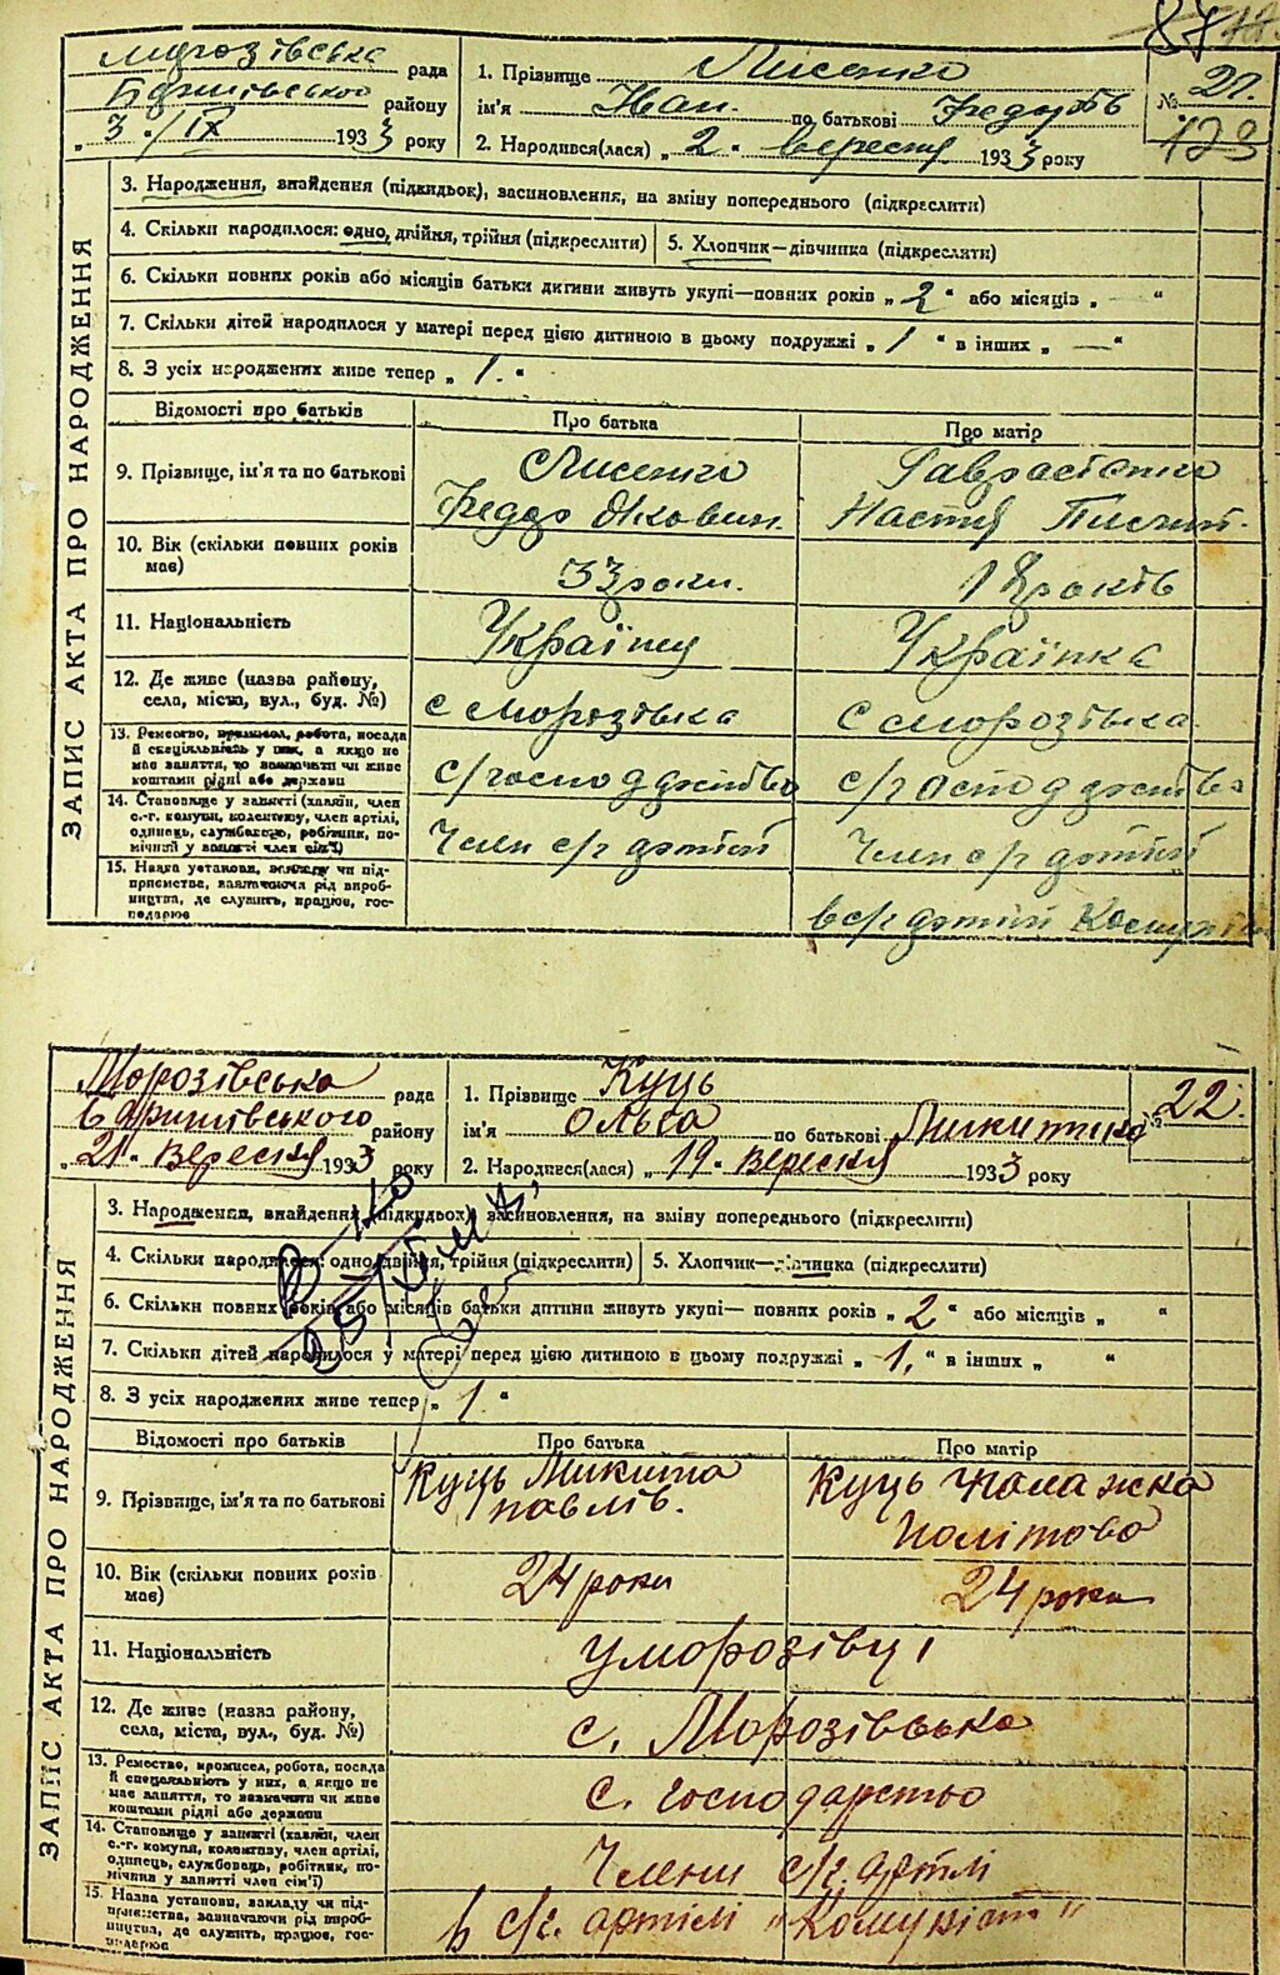 87
Морозівська рада
Баришівського району
„ 3 " / IX 1933 року
1. Прізвище Лисенко
ім'я Іван. по батькові Федорів
2. Народився(лася) „ 2 " вересня 1933 року
№ 21.
173
ЗАПИС АКТА ПРО НАРОДЖЕННЯ
3. Народження, знайдення (підкидьок), засиновлення, на зміну попереднього (підкреслити)
4. Скільки народилося: одно, двійня, трійня (підкреслити)
5. Хлопчик—дівчинка (підкреслити)
6. Скільки повних років або місяців батьки дитини живуть укупі—повних років „ 2 " або місяців „ — "
7. Скільки дітей народилося у матері перед цією дитиною в цьому подружжі „ 1 " в інших „ — "
8. З усіх народжених живе тепер „ 1. "
Відомості про батьків
Про батька
Про матір
9. Прізвище, ім'я та по батькові
Лисенко
Федор Якович.
Настя
10. Вік (скільки повних років
має)
33 роки.
18 років
11. Національність
Українц
Українка
12. Де живе (назва району,
села, міста, вул., буд. №)
с Морозівка
с Морозівка.
13. Ремество, промисел, робота, посада
й спеціяльність у них, а якщо не
має заняття, то зазначити чи живе
коштами рідні або держави
с/господарство
с/господарство
14. Становище у занятті (хазяїн, член
с.-г. комуни, колективу, член артілі,
одинець, службовець, робітник, по-
мічний у занятті член сім'ї)
Член с/г артілі
Член с/г артілі
15. Назва установи, закладу чи під-
приємства, зазначаючи рід вироб-
ництва, де служить, працює, гос-
подарює
в с/г артілі Комуніст
Морозівська рада
Баришівського району
„ 21 " Вересня 1933 року
1. Прізвище Куць
ім'я Ольга по батькові Микитівна
2. Народився(лася) „ 19 " Вересня 1933 року
№ 22.
ЗАПИС АКТА ПРО НАРОДЖЕННЯ
3. Народження, знайдення (підкидьок), засиновлення, на зміну попереднього (підкреслити)
4. Скільки народилося: одно, двійня, трійня (підкреслити)
5. Хлопчик—дівчинка (підкреслити)
6. Скільки повних років або місяців батьки дитини живуть укупі— повних років „ 2 " або місяців „ "
7. Скільки дітей народилося у матері перед цією дитиною в цьому подружжі „ 1. " в інших „ "
8. З усіх народжених живе тепер „ 1. "
Відомості про батьків
Про батька
Про матір
9. Прізвище, ім'я та по батькові
Куць Микита
Павлів.
Куць Паламжка
10. Вік (скільки повних років
має)
24 роки
24 роки
11. Національність
12. Де живе (назва району,
села, міста, вул., буд. №)
с. Морозівська
13. Ремество, промисел, робота, посада
й спеціяльність у них, а якщо не
має заняття, то зазначити чи живе
коштами рідні або держави
с. господарство
14. Становище у занятті (хазяїн, член
с.-г. комуни, колективу, член артілі,
одинець, службовець, робітник, по-
мічний у занятті член сім'ї)
Члени с/г. артілі
15. Назва установи, закладу чи під-
приємства, зазначаючи рід вироб-
ництва, де служить, працює, гос-
подарює
в с/г. артілі „Комуніст"